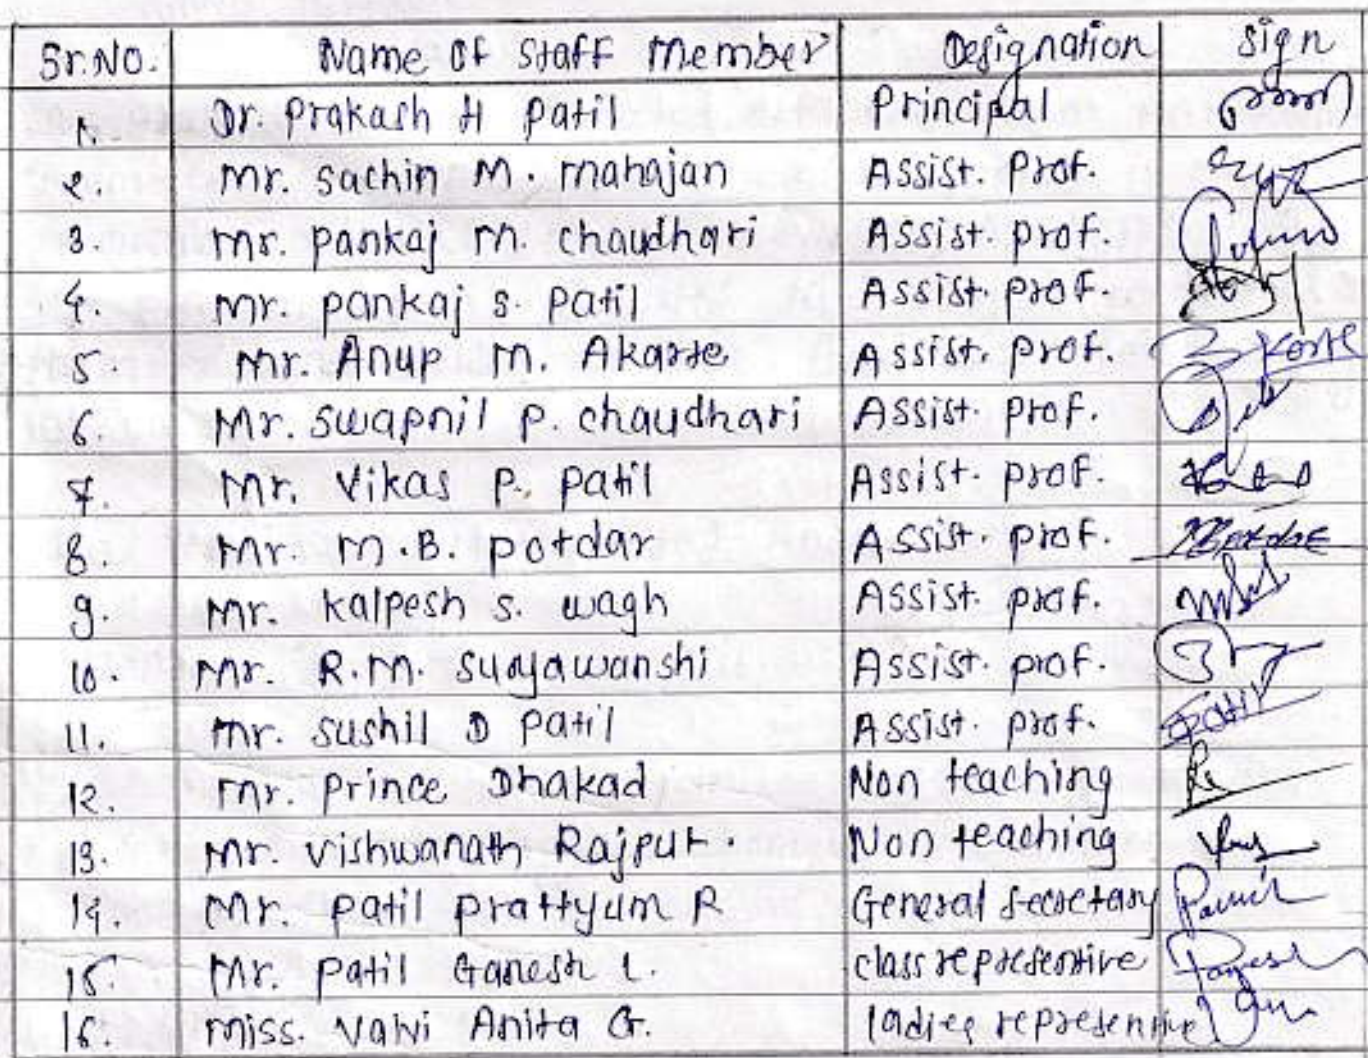 Sr.No. Name Of Staff Member Designation Sign
1. Dr. Prakash H Patil Principal
2. Mr. Sachin M. Mahajan Assist. Prof.
3. Mr. Pankaj M. Chaudhari Assist. Prof.
4. Mr. Pankaj S. Patil Assist. Prof.
5. Mr. Anup M. Akarte Assist. Prof.
6 Mr. Swapnil P. Chaudhari Assist. Prof.
7. Mr. Vikas P. Patil Assist. Prof.
8. Mr. M.B. Potdar Assist. Prof.
9. Mr. Kalpesh S. Wagh Assist. Prof.
10. Mr. R.M. Suryawanshi Assist. Prof.
11. Mr. Sushil D Patil Assist. Prof. Patil
12. Mr. Prince Dhakad Non teaching
13. Mr. Vishwanath Rajput. Non teaching
14. Mr. Patil Prattyum R General Secretary
15. Mr. Patil Ganesh L. Class representive
16. Miss. Valvi Anita G. ladies representive